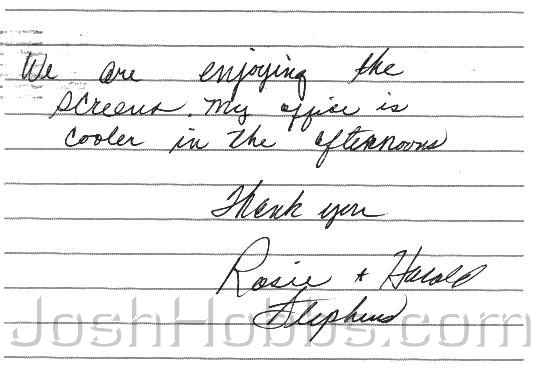 We are enjoying the
screens. My office is
cooler in the afternoons
Thank you
Rosie + Harold
Stephens
JoshHobbs.com